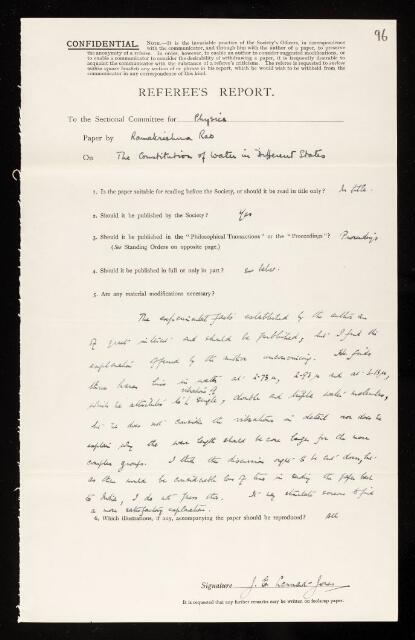 96
CONFIDENTIAL. NOTE.—It is the invariable practice of the Society's Officers, in correspondence
with the communicator, and through him with the author of a paper, to preserve
the anonymity of a referee. In order, however, to enable an author to consider suggested modifications, or
to enable a communicator to consider the desirability of withdrawing a paper, it is frequently desirable to
acquaint the communicator with the substance of a referee's criticisms. The referee is requested to
within square brackets any section of or phrase in his report, which he would wish to be withheld from the
communicator in any correspondence of this kind.
REFEREE'S REPORT.
To the Sectional Committee for Physics
Paper by Ramakrishna Rao
On The Constitution of Water in Different States
1. Is the paper suitable for reading before the Society, or should it be read in title only? In title.
2. Should it be published by the Society? Yes
3. Should it be published in the "Philosophical Transactions" or the "Proceedings"? Proceedings
(See Standing Orders on opposite page.)
4. Should it be published in full or only in part? see below.
5. Are any material modifications necessary?
The experimental facts established by the author are
of great interest and should be published, but I find the
explanation offered by the author unconvincing. He finds
three lines in water at
which he attributes to vibrations of single, double and triple water molecules,
but he does not consider the vibrations in detail nor does he
explain why the wave length should be longer for the more
complex groups. I think the discussion ought to be cut down, but
as there would be considerable loss of time in sending the paper back
to India, I do not press this. It may stimulate someone to find
a more satisfactory explanation.
6. Which illustrations, if any, accompanying the paper should be reproduced? All
Signature J. E. Lennard-Jones
It is requested that any further remarks may be written on foolscap paper.